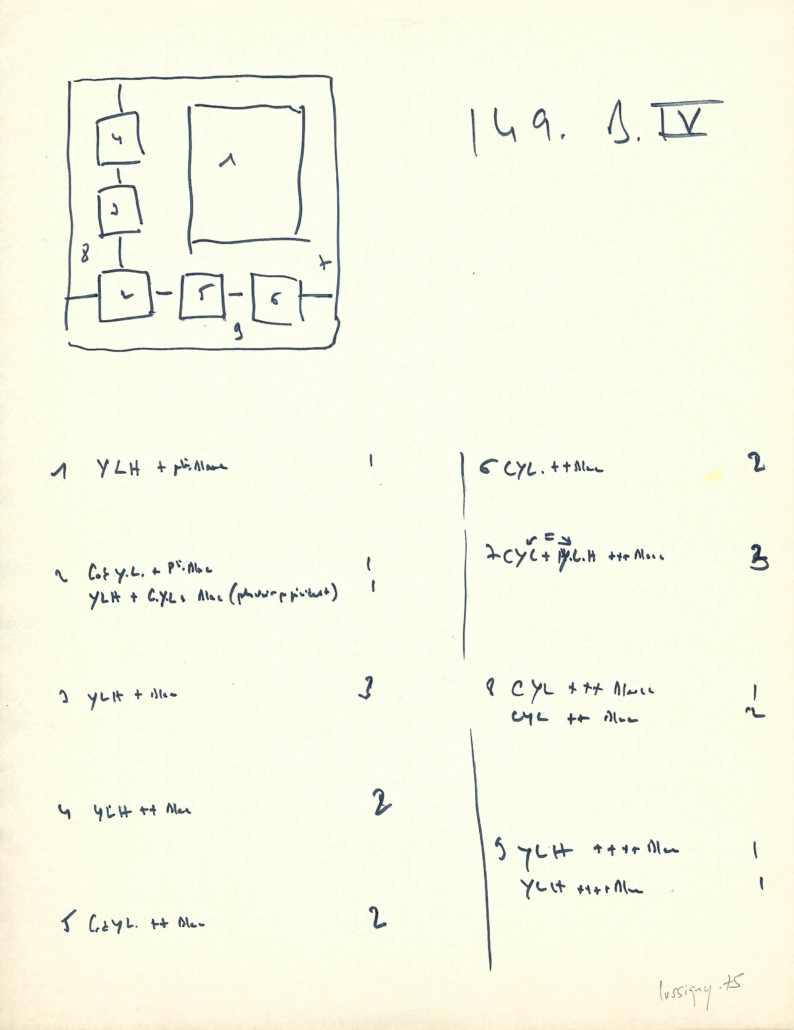 149. B. IV
4
1
3
8
7
2
5
6
9
1 YLH + pti. Blanc 1
2 Cot Y.L. + Pti. Blanc 1
YLH + C.YL+ Blanc 1
3 YLH + Blanc 3
4 YLH ++ Blanc 2
5 Cot YL. ++ Blanc 2
6 CYL. ++ Blanc 2
=
7 CYL + Y.L.H +++ Blanc 3
8 CYL +++ Blanc 1
CYL ++ Blanc 2
9 YLH ++++ Blanc 1
YLH ++++ Blanc 1
lussigny.75